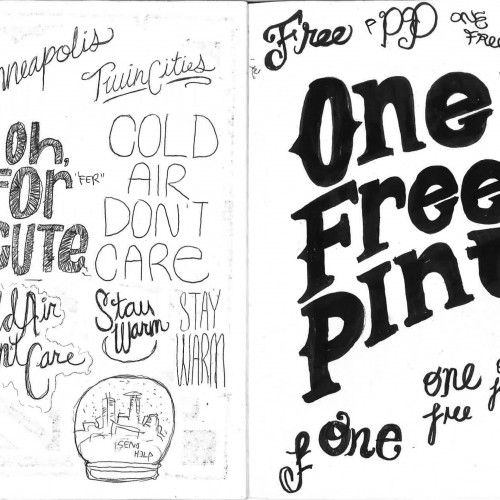 nneapolis
Twin Cities
Oh,
FOR
"FER"
CUTE
COLD
AIR
DON'T
CARE
ld Air
n't Care
Stay
Warm
STAY
WARM
SEND
HELP
Free
P
ONE
FREE
One
Free
PInt
one
free
f
One